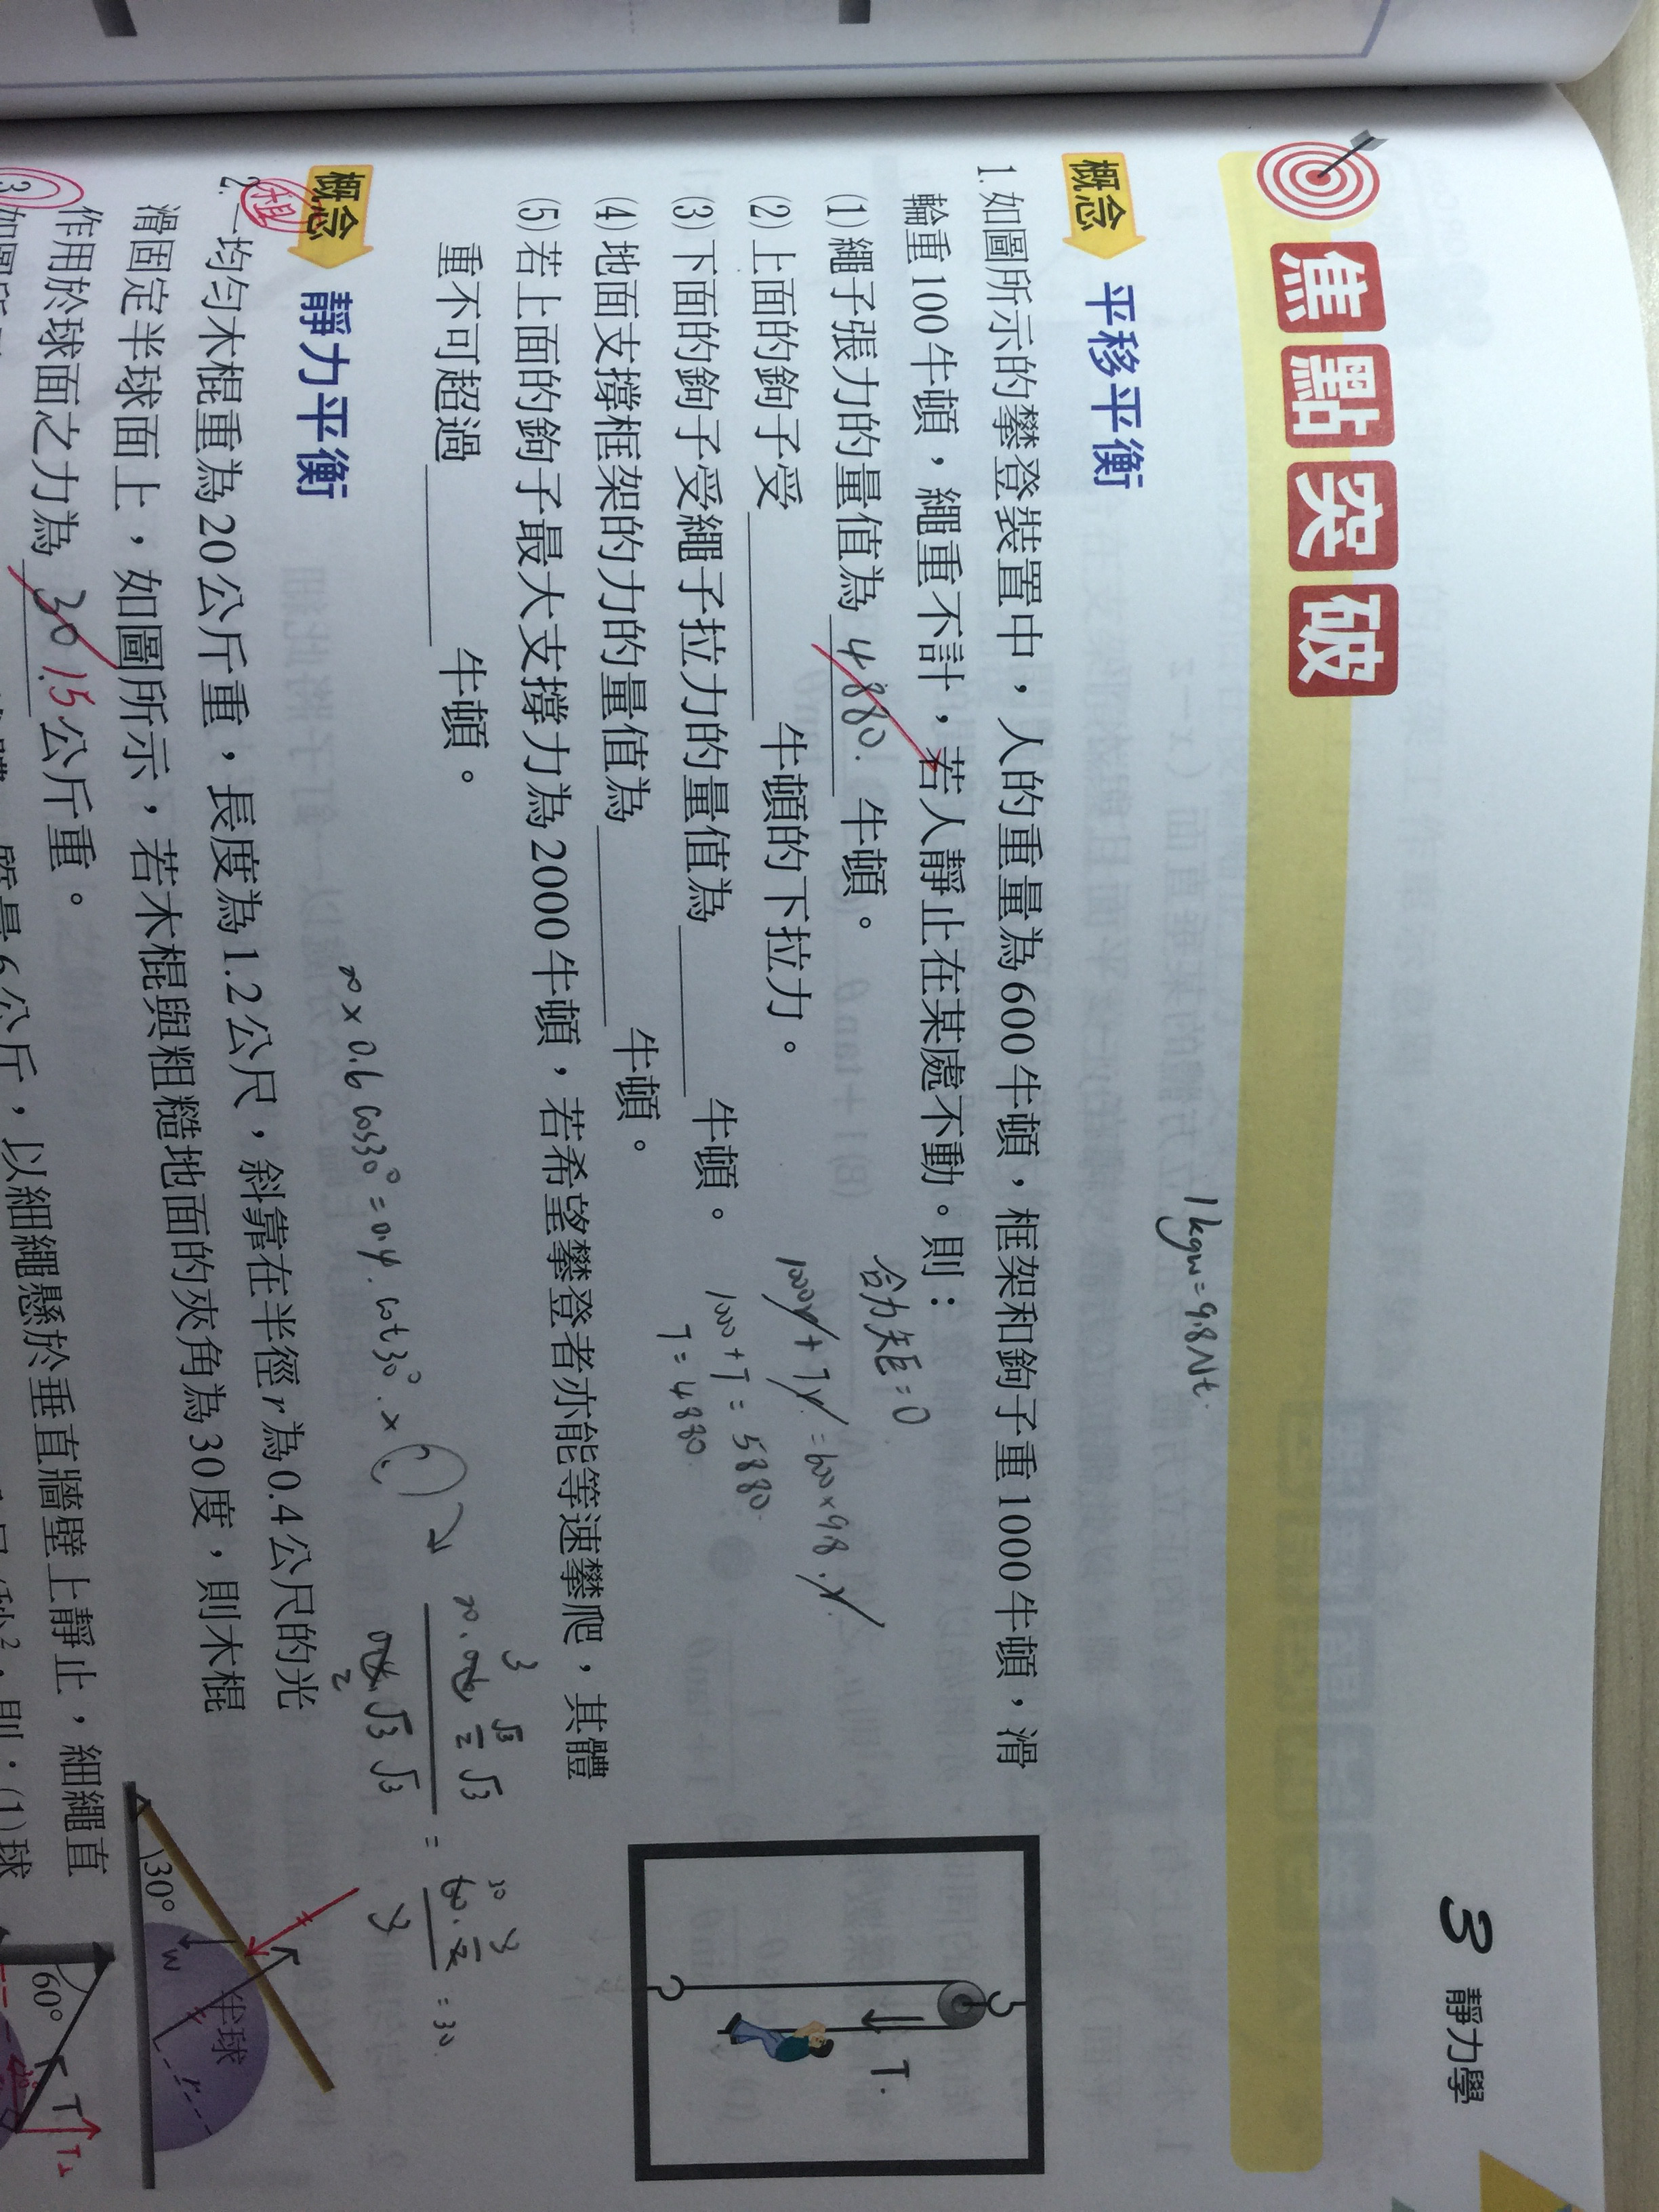 3 靜力學
焦點突破
1kgw=9.8Nt.
概念 平移平衡
1. 如圖所示的攀登裝置中，人的重量為600牛頓，框架和鉤子重1000牛頓，滑
輪重100牛頓，繩重不計，若人靜止在某處不動。則：
(1) 繩子張力的量值為 4880. 牛頓。
合力矩=0
(2) 上面的鉤子受 牛頓的下拉力。
1000y + Ty = 600×9.8.y
(3) 下面的鉤子受繩子拉力的量值為 牛頓。
1000+T=5880.
T=4880.
(4) 地面支撐框架的力的量值為 牛頓。
(5) 若上面的鉤子最大支撐力為2000牛頓，若希望攀登者亦能等速攀爬，其體
重不可超過 牛頓。
T.
×0.6 cos30°=0.4.cot30°.×
=30.
概念 靜力平衡
2. 一均勻木棍重為20公斤重，長度為1.2公尺，斜靠在半徑r為0.4公尺的光
棍
滑固定半球面上，如圖所示，若木棍與粗糙地面的夾角為30度，則木棍
作用於球面之力為 30 15 公斤重。
30°
W
半球
r
3. 質量6公斤，以細繩懸於垂直牆壁上靜止，細繩直
60°
T
則：(1)球